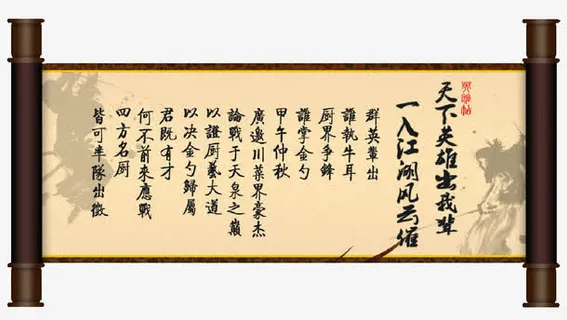 英雄帖
天下英雄出我輩
一入江湖风云催
群英輩出
誰執牛耳
厨界爭鋒
誰掌金勺
甲午仲秋
廣邀川菜界豪杰
論戰于天泉之巔
以證厨藝大道
以决金勺歸屬
君既有才
何不前來應戰
四方名厨
皆可率隊出徵